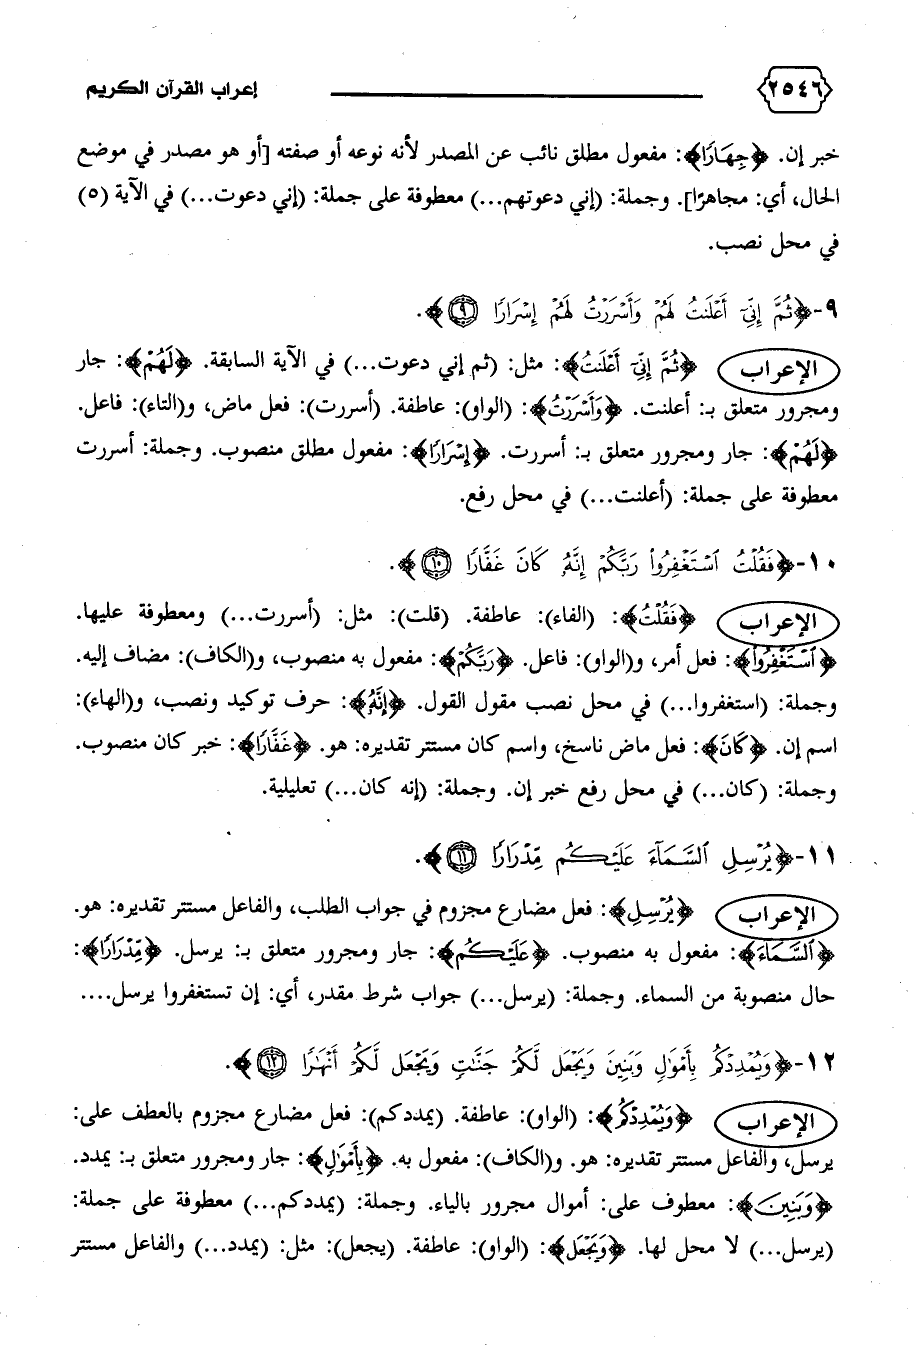 ٢٥٤٦ إعراب القرآن الكريم
خبر إن. ﴿جِهَارًا﴾: مفعول مطلق نائب عن المصدر لأنه نوعه أو صفته [أو هو مصدر في موضع
الحال، أي: مجاهرًا]. وجملة: (إني دعوتهم...) معطوفة على جملة: (إني دعوت...) في الآية (٥)
في محل نصب.
٩-﴿ثُمَّ إِنِّيٓ أَعْلَنتُ لَهُمْ وَأَسْرَرْتُ لَهُمْ إِسْرَارًا ٩﴾.
الإعراب ﴿ثُمَّ إِنِّيٓ أَعْلَنتُ﴾: مثل: (ثم إني دعوت...) في الآية السابقة. ﴿لَهُمْ﴾: جار
ومجرور متعلق بـ: أعلنت. ﴿وَأَسْرَرْتُ﴾: (الواو): عاطفة. (أسررت): فعل ماض، و(التاء): فاعل.
﴿لَهُمْ﴾: جار ومجرور متعلق بـ: أسررت. ﴿إِسْرَارًا﴾: مفعول مطلق منصوب. وجملة: أسررت
معطوفة على جملة: (أعلنت...) في محل رفع.
١٠-﴿فَقُلْتُ ٱسْتَغْفِرُوا۟ رَبَّكُمْ إِنَّهُۥ كَانَ غَفَّارًا ١٠﴾.
الإعراب ﴿فَقُلْتُ﴾: (الفاء): عاطفة. (قلت): مثل: (أسررت...) ومعطوفة عليها.
﴿ٱسْتَغْفِرُوا۟﴾: فعل أمر، و(الواو): فاعل. ﴿رَبَّكُمْ﴾: مفعول به منصوب، و(الكاف): مضاف إليه.
وجملة: (استغفروا...) في محل نصب مقول القول. ﴿إِنَّهُۥ﴾: حرف توكيد ونصب، و(الهاء):
اسم إن. ﴿كَانَ﴾: فعل ماض ناسخ، واسم كان مستتر تقديره: هو. ﴿غَفَّارًا﴾: خبر كان منصوب.
وجملة: (كان...) في محل رفع خبر إن. وجملة: (إنه كان...) تعليلية.
١١-﴿يُرْسِلِ ٱلسَّمَآءَ عَلَيْكُم مِّدْرَارًا ١١﴾.
الإعراب ﴿يُرْسِلِ﴾: فعل مضارع مجزوم في جواب الطلب، والفاعل مستتر تقديره: هو.
﴿ٱلسَّمَآءَ﴾: مفعول به منصوب. ﴿عَلَيْكُم﴾: جار ومجرور متعلق بـ: يرسل. ﴿مِّدْرَارًا﴾:
حال منصوبة من السماء. وجملة: (يرسل...) جواب شرط مقدر، أي: إن تستغفروا يرسل....
١٢-﴿وَيُمْدِدْكُم بِأَمْوَٰلٍ وَبَنِينَ وَيَجْعَل لَّكُمْ جَنَّٰتٍ وَيَجْعَل لَّكُمْ أَنْهَٰرًا ١٢﴾.
الإعراب ﴿وَيُمْدِدْكُم﴾: (الواو): عاطفة. (يمددكم): فعل مضارع مجزوم بالعطف على:
يرسل، والفاعل مستتر تقديره: هو. و(الكاف): مفعول به. ﴿بِأَمْوَٰلٍ﴾: جار ومجرور متعلق بـ: يمدد.
﴿وَبَنِينَ﴾: معطوف على: أموال مجرور بالياء. وجملة: (يمددكم...) معطوفة على جملة:
(يرسل...) لا محل لها. ﴿وَيَجْعَل﴾: (الواو): عاطفة. (يجعل): مثل: (يمدد...) والفاعل مستتر